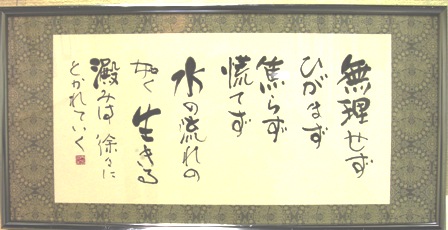 無理せず
ひがまず
焦らず
慌てず
水の流れの
如く 生きる
澱みは 徐々に
とかれていく